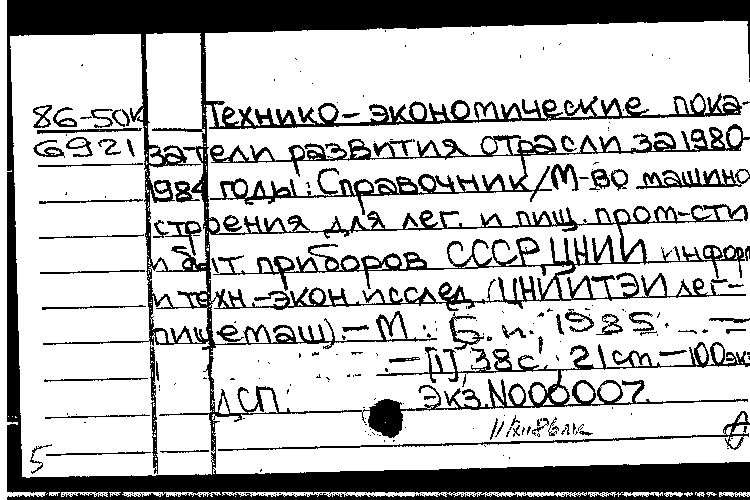 86-50К Технико-экономические пока-
6921 затели развития отрасли за 1980-
1984 годы: Справочник/М-во машино
строения для лег. и пищ. пром-сти
и быт. приборов СССР, ЦНИИ информ
и техн.-экон. исслед. (ЦНИИТЭИлег-
пищемаш).-М.: Б. и., 1985. —
— [1] 38с.; 21см.-100экз
ДСП. Экз.N000007.
5